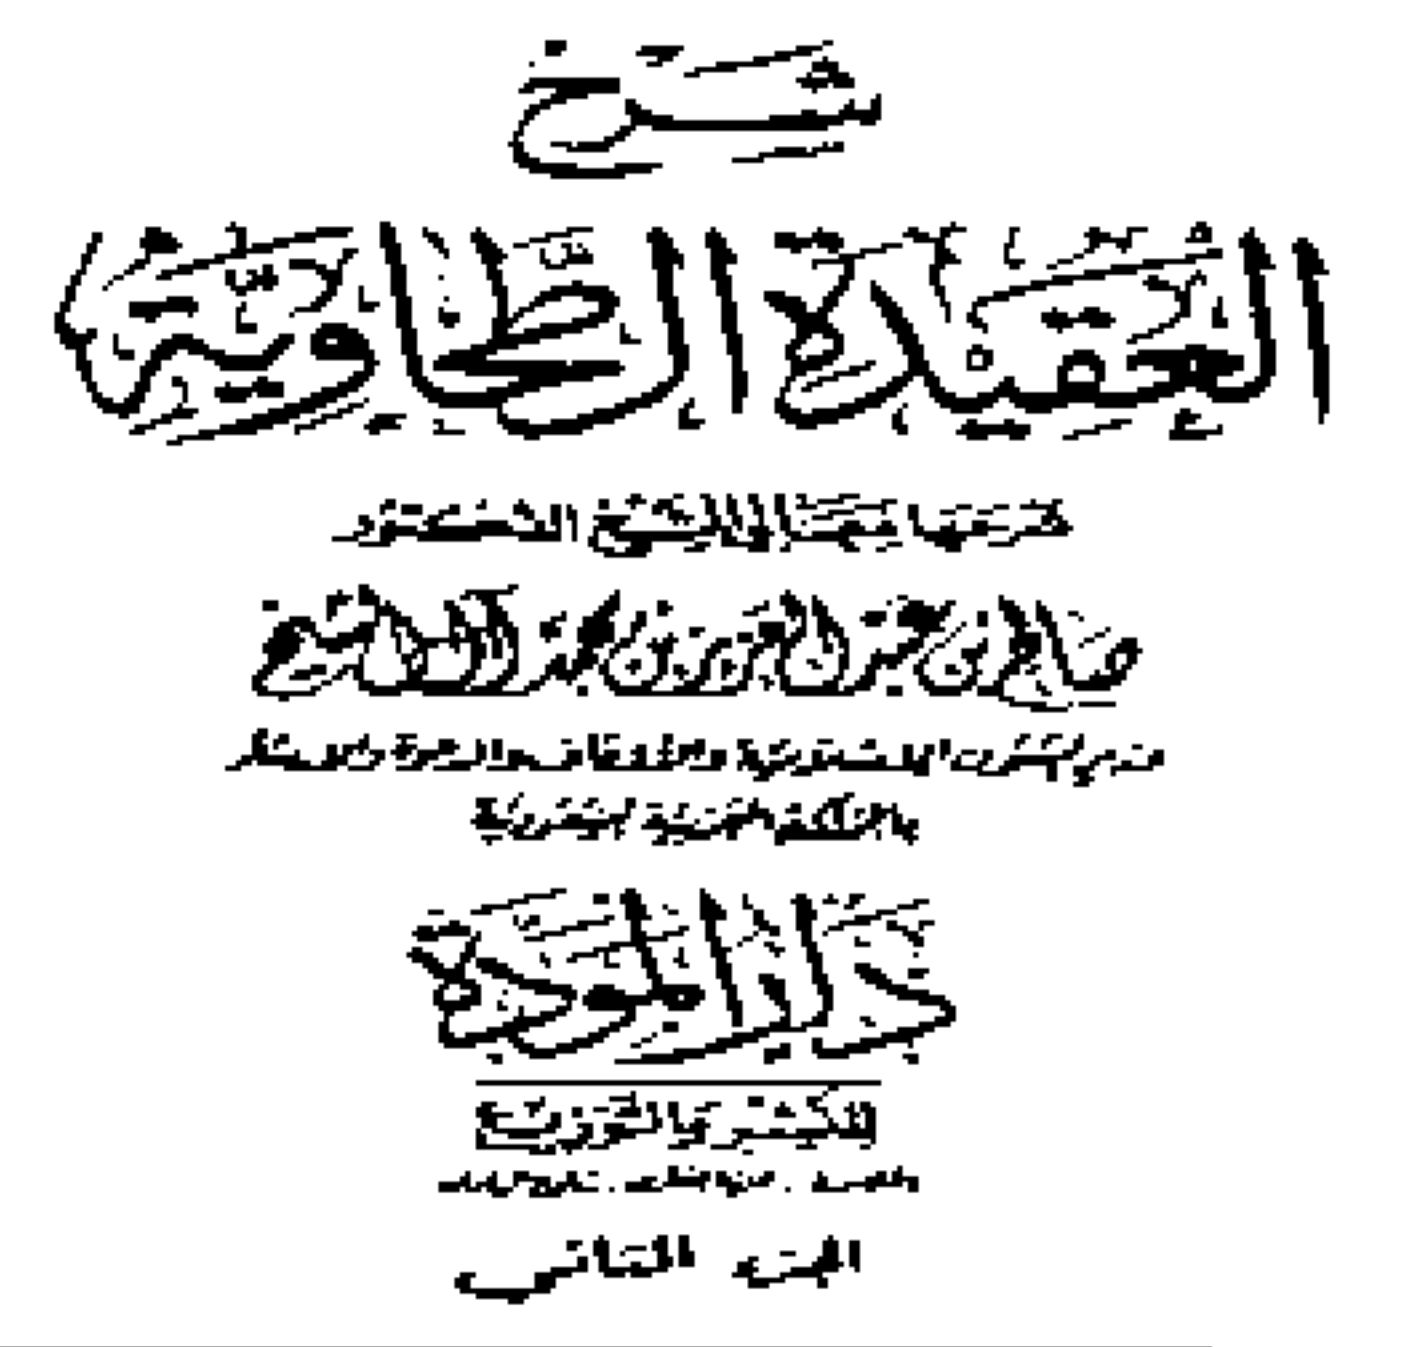 شرح
العقيدة الطحاوية
الشيخ الدكتور
صالح بن عبد العزيز بن محمد آل الشيخ
وزير الشئون الإسلامية والأوقاف والدعوة والإرشاد
بالمملكة العربية السعودية
دار المودة
للنشر والتوزيع
الجزء الثاني